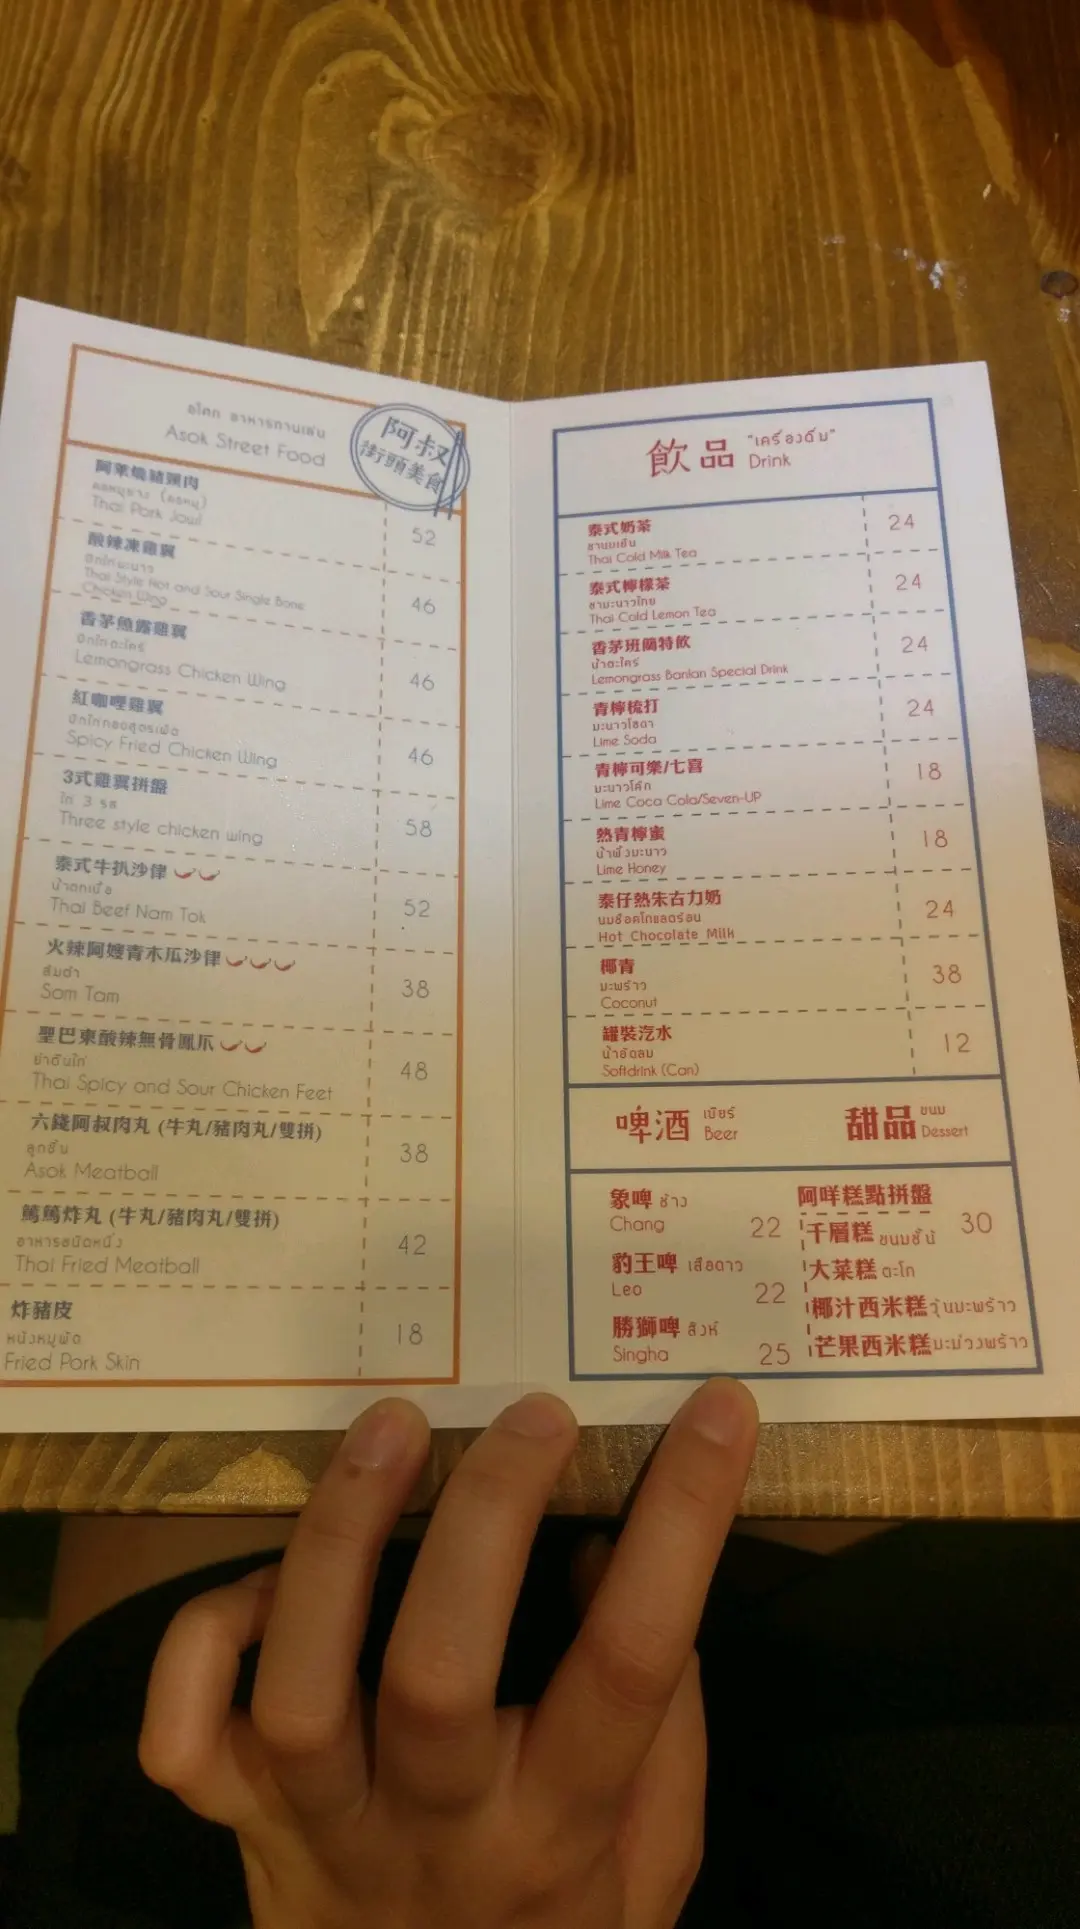 อโศก อาหารทานเล่น
Asok Street Food
阿叔
街頭美食
阿萊燒豬頸肉
คอหมูย่าง (คอหมู)
Thai Pork Jowl
52
酸辣凍雞翼
ปีกไก่มะนาว
Thai Style Hot and Sour Single Bone
Chicken Wing
46
香茅魚露雞翼
ปีกไก่ตะไคร้
Lemongrass Chicken Wing
46
紅咖喱雞翼
ปีกไก่ทอดสูตรเผ็ด
Spicy Fried Chicken Wing
46
3式雞翼拼盤
ไก่ 3 รส
Three style chicken wing
58
泰式牛扒沙律
น้ำตกเนื้อ
Thai Beef Nam Tok
52
火辣阿嫂青木瓜沙律
ส้มตำ
Som Tam
38
聖巴東酸辣無骨鳳爪
ยำตีนไก่
Thai Spicy and Sour Chicken Feet
48
六錢阿叔肉丸 (牛丸/豬肉丸/雙拼)
ลูกชิ้น
Asok Meatball
38
篤篤炸丸 (牛丸/豬肉丸/雙拼)
อาหารชนิดหนึ่ง
Thai Fried Meatball
42
炸豬皮
หนังหมูผัด
Fried Pork Skin
18
飲品 "เครื่องดื่ม"
Drink
泰式奶茶
ชานมเย็น
Thai Cold Milk Tea
24
泰式檸檬茶
ชามะนาวไทย
Thai Cold Lemon Tea
24
香茅班蘭特飲
น้ำตะไคร้
Lemongrass Banlan Special Drink
24
青檸梳打
มะนาวโซดา
Lime Soda
24
青檸可樂/七喜
มะนาวโค้ก
Lime Coca Cola/Seven-UP
18
熱青檸蜜
น้ำผึ้งมะนาว
Lime Honey
18
泰仔熱朱古力奶
นมช็อคโกแลตร้อน
Hot Chocolate Milk
24
椰青
มะพร้าว
Coconut
38
罐裝汽水
น้ำอัดลม
Softdrink (Can)
12
啤酒 เบียร์
Beer
甜品 ขนม
Dessert
象啤 ช้าง
Chang 22
豹王啤 เสือดาว
Leo 22
勝獅啤 สิงห์
Singha 25
阿咩糕點拼盤
30
千層糕 ขนมชั้น
大菜糕 ตะโก้
椰汁西米糕 วุ้นมะพร้าว
芒果西米糕 มะม่วงพร้าว